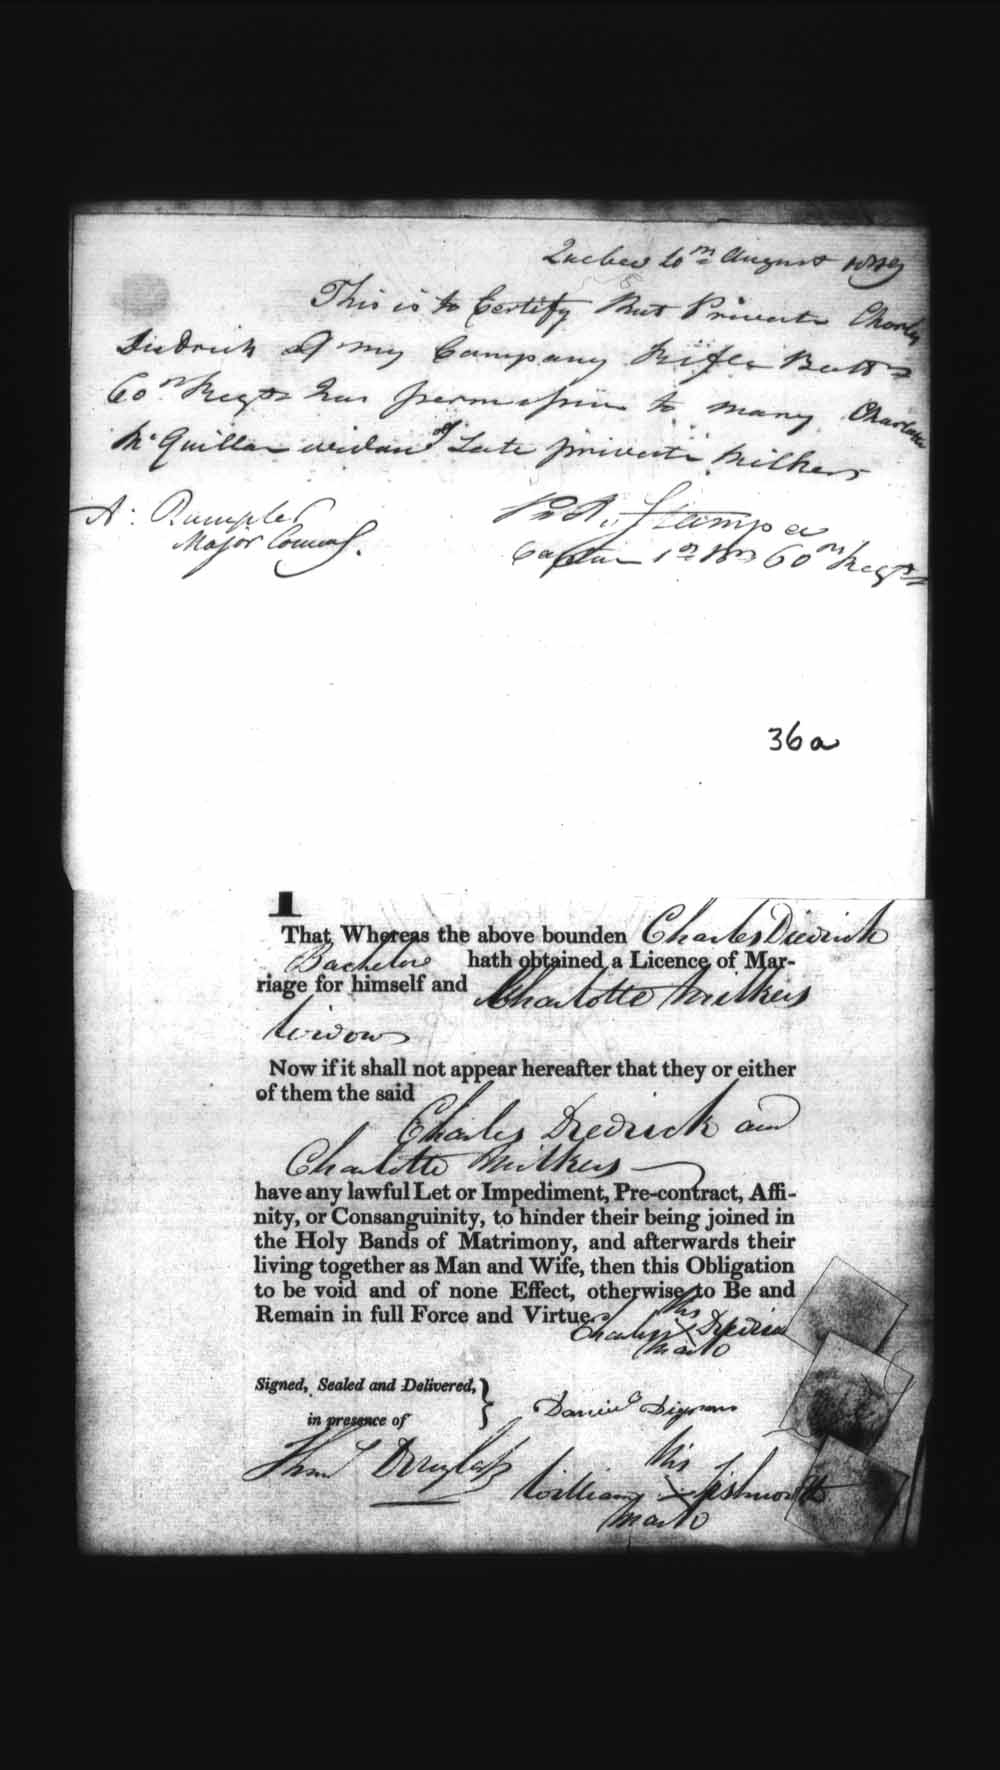 Quebec 20th August
This is to Certify that Private Charles
Diedrick of my Company Rifle Battn
60th Regt has permission to marry Charlotte
McQuillan widow of Late private Milkers
A: Rumpler
Major Comm
Stamper
Captain 1st Bn 60th Regt
36a
That Whereas the above bounden Charles Diedrick
Bachelor hath obtained a Licence of Mar-
riage for himself and Charlotte Milkers
Widow
Now if it shall not appear hereafter that they or either
of them the said
Charles Diedrick and
Charlotte Milkers
have any lawful Let or Impediment, Pre-contract, Affi-
nity, or Consanguinity, to hinder their being joined in
the Holy Bands of Matrimony, and afterwards their
living together as Man and Wife, then this Obligation
to be void and of none Effect, otherwise to Be and
Remain in full Force and Virtue.
his
Charles X Diedrick
mark
Signed, Sealed and Delivered,
in presence of
Daniel Dignam
Thos Douglass
his
William X Fishworth
mark